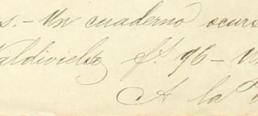 s.- Un cuaderno
Valdivielso fs. 96 -
A la